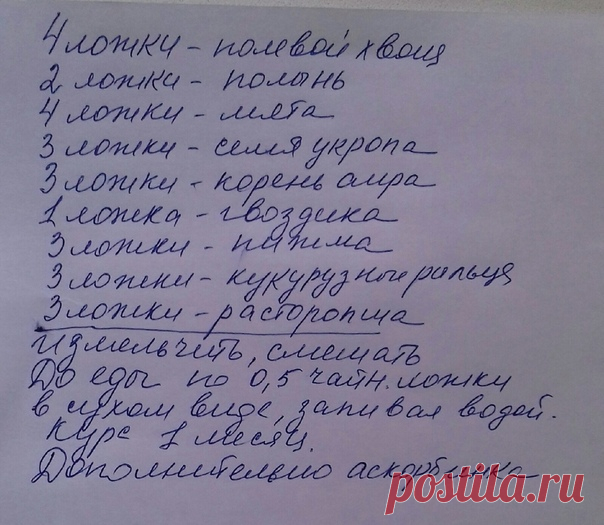 4 ложки - полевой хвощ
2 ложки - полынь
4 ложки - мята
3 ложки - семя укропа
3 ложки - корень аира
1 ложка - гвоздика
3 ложки - пижма
3 ложки - кукурузные рыльца
3 ложки - расторопша
измельчить, смешать
До еды по 0,5 чайн. ложки
в сухом виде, запивая водой.
Курс 1 месяц.
Дополнительно аскорбинка
postila.ru